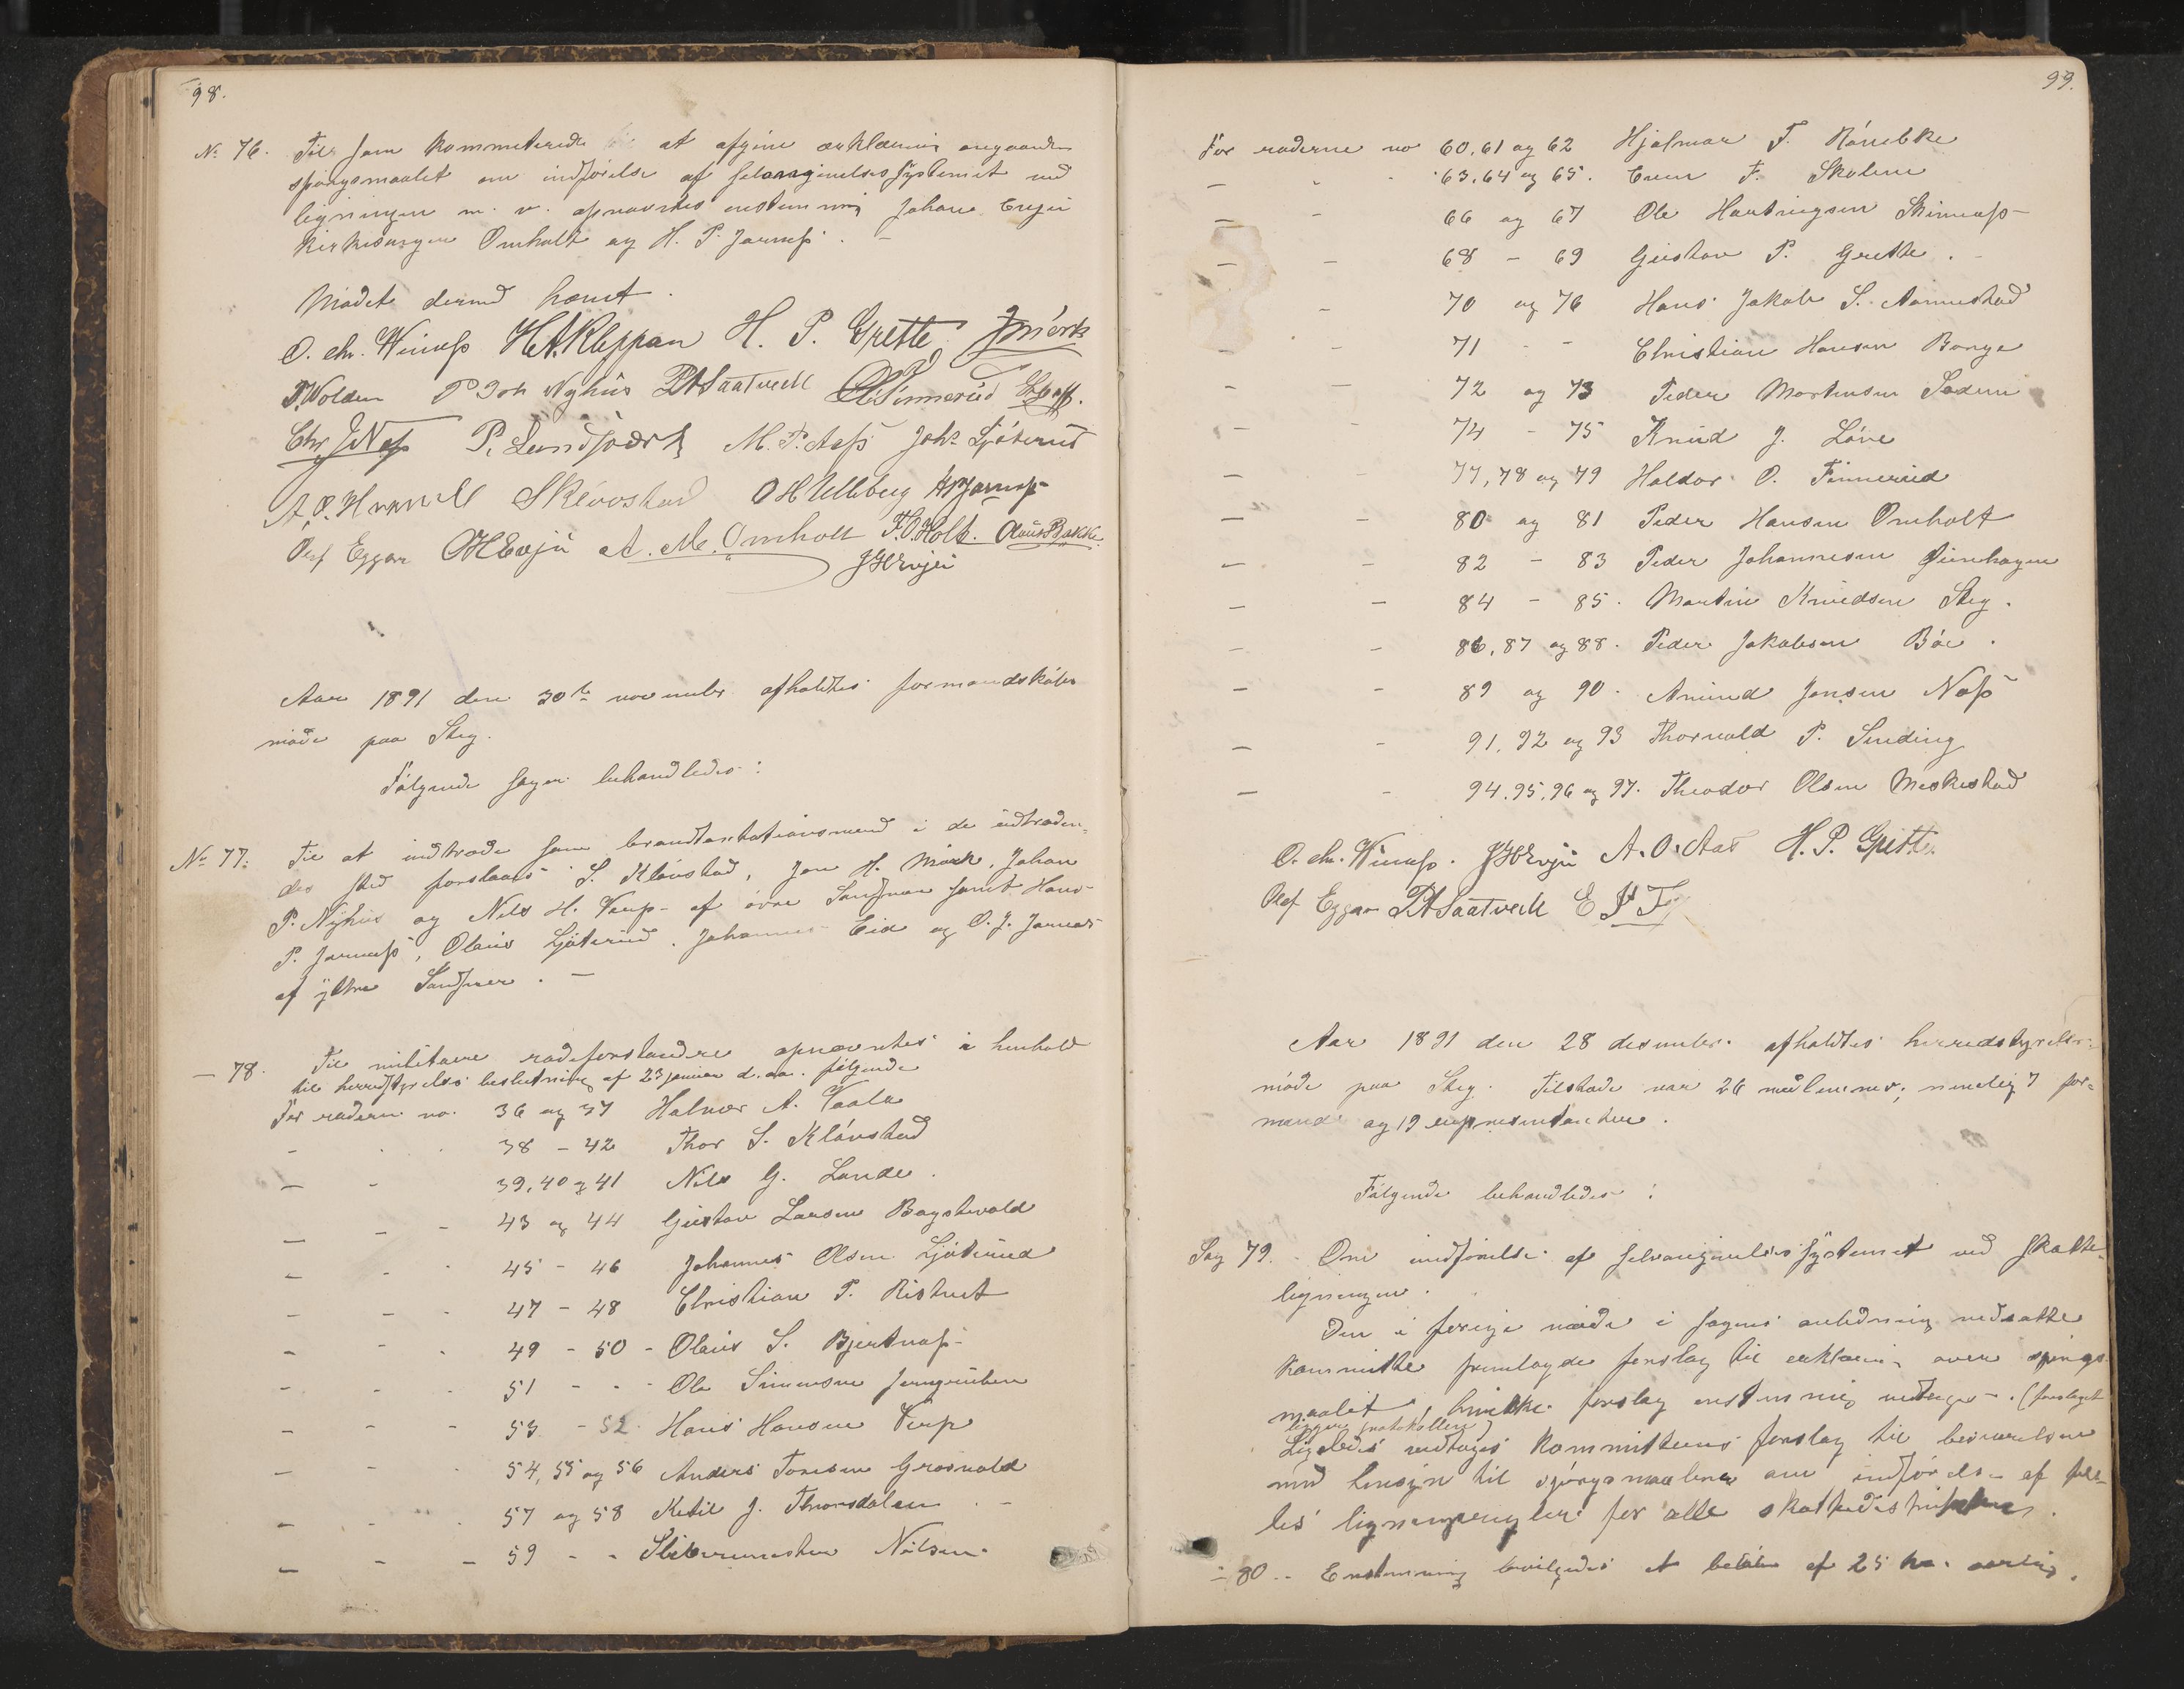 98.
No 76. Til som kommiterede at afgive erklæring angaaende
spørgsmaalet om indførelse af selvangivelsessystemet ved
ligningen m. v. opnævntes enstemmig Johan Evju
kirkesanger Omholt og H. P. Jarnæss. –
Mødet dermed hævet.
O. Chr. Winness H. A. Kleppan H. P. Grette J Mørk
P. Wolden P Joh Nyhus P A Saatvedt O Sinnerud
Chr J Næss P. Lundsværk M. P. Aass Joh. Ljøterud
S Kløvstad O H Ulleberg H P Jarness
Olaf Eggar O H Evju A. M. Omholt F. O. Holt. Olaus Bakke.
J H Evju
Aar 1891 den 30te november afholdtes formandskabs
møde paa Steg.
Følgende sager behandledes:
No 77. Til at indtræde som brandtaxtationsmænd i de udtræden=
des sted foreslaaes S. Kløvstad, Jon H. Mørk, Johan
P. Nyhus og Nils H. Verp af øvre Sandsvær samt Hans
P. Jarness, Olaus Ljøterud, Johannes Eid og O. J. Jarnæs
af ytre Sandsvær. –
– 78. Til militære rodeforstandere opnævntes i henhold
til herredstyrelses beslutning af 23 januar d. aa. følgende
For roderne no. 36 og 37 Halvor A. Vaala
- - - 38 – 42 Thor S. Kløvstad
– - 39, 40 og 41 Nils G. Lande.
– – – 43 og 44 Gustav Larsen Bagstevold
– - - 45 – 46 Johannes Olsen Ljøterud
– - - 47 – 48 Christian P. Ristvet
– - - 49 – 50 – Olaus S. Bjertnæss
– - - 51 - - Ole Simensen Jerngruben
– - – 53 – 52 Hans Hansen Verp
– - - 54, 55 og 56 Anders Toresen Grosvold
– - - 57 og 58 Ketil J. Thorsdalen. –
– – – 59 - - Stibermester Nilsen.
99.
For roderne no 60, 61 og 62 Hjalmar F. Rønebke
– - - 63, 64 og 65. Even F. Skolem
– - 66 og 67 Ole Hartvigsen Skinness
– – 68 – 69 Gustav P. Grette.
- 70 og 76 Hans Jakob S. Aannestad
– - 71 - - Christian Hansen Borge
– – 72 og 73 Peder Mortensen Sodem
– - 74 – 75 Knud J. Løve
– - 77, 78 og 79 Haldor O. Finnerud
– - 80 og 81 Peder Hansen Omholt
– - 82 – 83 Peder Johannesen Øienhagen
– – 84 – 85. Martin Knudsen Steg.
– – 86, 87 og 88. Peder Jakobsen Bøe.
– - 89 og 90. Amund Jonsen Næss
– - 91, 92 og 93 Thorvald P. Sinding
– - 94, 95, 96 og 97. Theodor Olsen Meskestad
O. Chr. Winness. J H Evju A. O. Aas H. P. Grette
Olaf Eggar P A Saatvedt
Aar 1891 den 28 desember afholdtes herredstyrelses=
møde paa Steg. Tilstede var 26 medlemmer, nemlig 7 for=
mænd og 19 repræsentanter.
Følgende behandledes:
Sag 79. Om indførelse af selvangivelsessystemet ved skatte=
ligningen.
Den i forrige møde i sagens anledning nedsatte
kommitte fremlagde forslag til erklæring over spørgs
maalet, hvilke forslag enstemmig vedtages. (forslaget
ligger protokollen)
Ligeledes vedtages kommitteens forslag til besvarelsen
med hensyn til spørgsmaalene om indførelse af fæl=
les ligningsregler for alle skattedistrikter.
– 80. Enstemmig bevilgedes et beløb af 25 kr. aarlig.